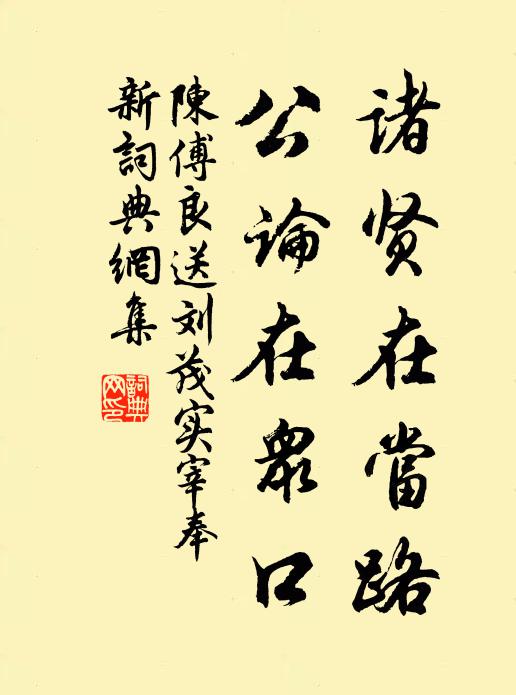 诸贤在當路
公論在眾口
陳傅良送刘茂实宰奉
新詞典網集
詞典网印